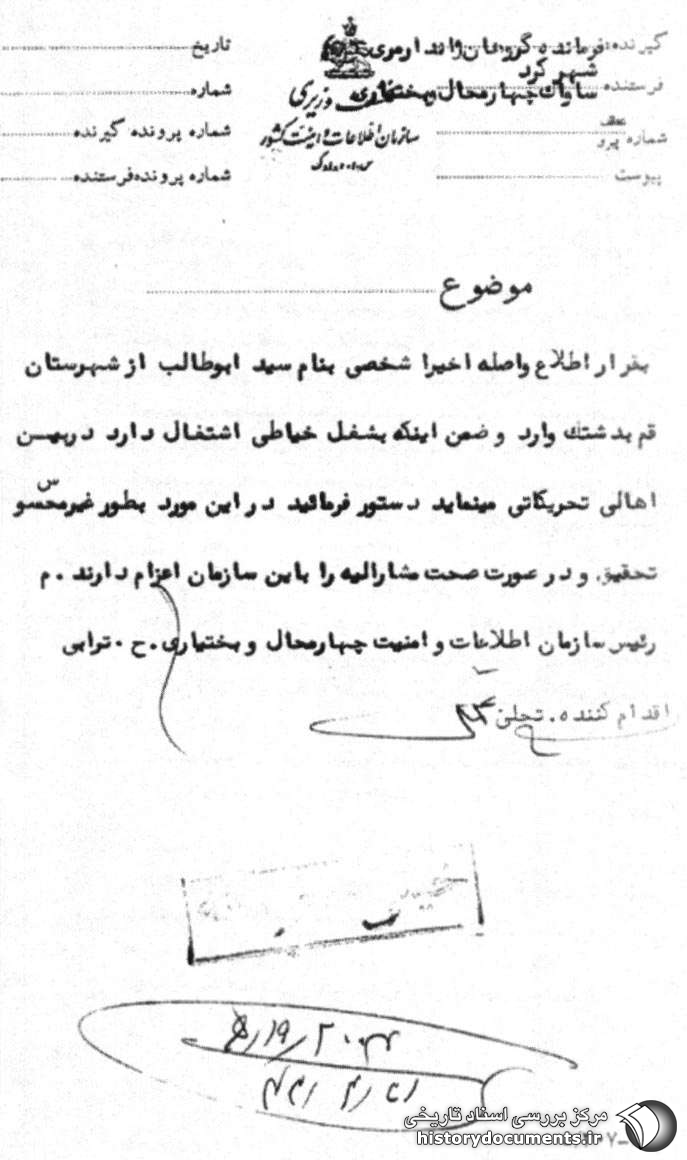 گیرنده: فرمانده گروهان ژاندارمری شهر کرد
فرستنده ساواک چهارمحال و بختیاری
شماره پرو
پیوست
نخست وزیری
سازمان اطلاعات و امنیت کشور
س.ا.و.ا.ک
تاریخ
شماره
شماره پرونده گیرنده
شماره پرونده فرستنده
موضوع
بقرار اطلاع واصله اخیرا شخصی بنام سید ابوطالب از شهرستان
قم بدشتك وارد و ضمن اینکه بشغل خیاطی اشتغال دارد دربین
اهالی تحریکاتی مینماید دستور فرمائید در این مورد بطور غیرمحسوس
تحقیق و در صورت صحت مشارالیه را باین سازمان اعزام دارند . م
رئیس سازمان اطلاعات و امنیت چهارمحال و بختیاری . ح . ترابی
اقدام کننده . تجلی
مرکز بررسی اسناد تاریخی
historydocuments.ir